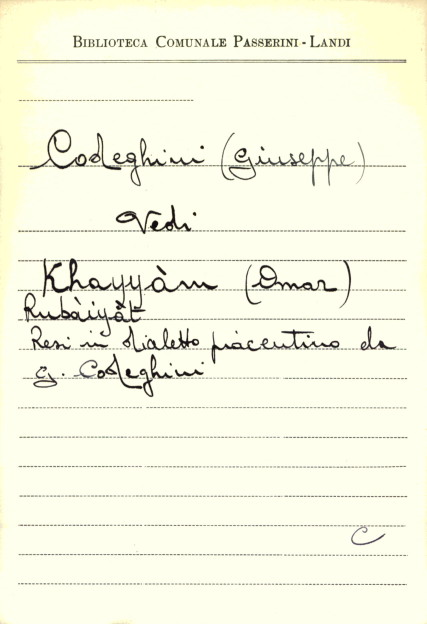 BIBLIOTECA COMUNALE PASSERINI - LANDI
Codeghini (Giuseppe)
Vedi
Khayyàm (Omar)
Rubàiyàt
Resi in dialetto piacentino da
G. Codeghini
C